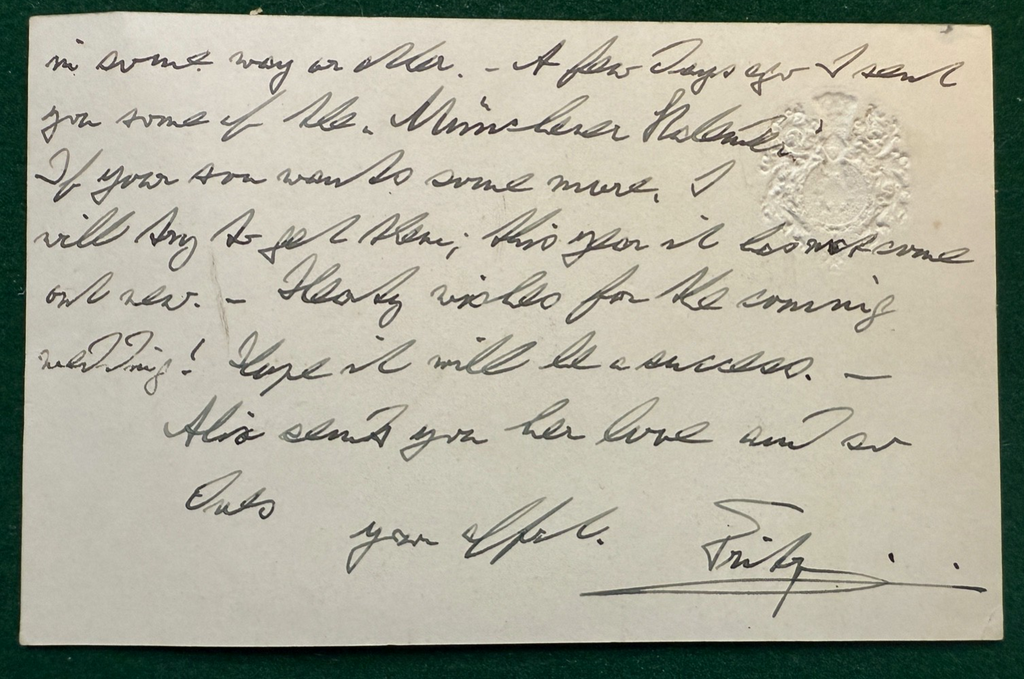 in some way or other. – A few days ago I sent
you some of the „Münchener Kalender"
If your son wants some more, I
will try to get them; this year it has not come
out new. – Hearty wishes for the coming
wedding! Hope it will be a success. –
Alix sends you her love and so
does
your affct.
Fritz